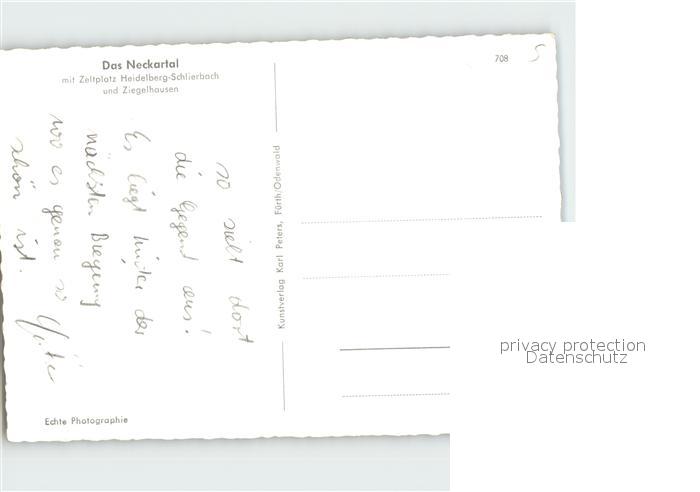 Das Neckartal
mit Zeltplatz Heidelberg-Schlierbach
und Ziegelhausen
708
so sieht dort
die Gegend aus!
Es liegt hinter der
nächsten Biegung
wo es genau so
schön ist.
Kunstverlag Karl Peters, Fürth/Odenwald
Echte Photographie
privacy protection
Datenschutz